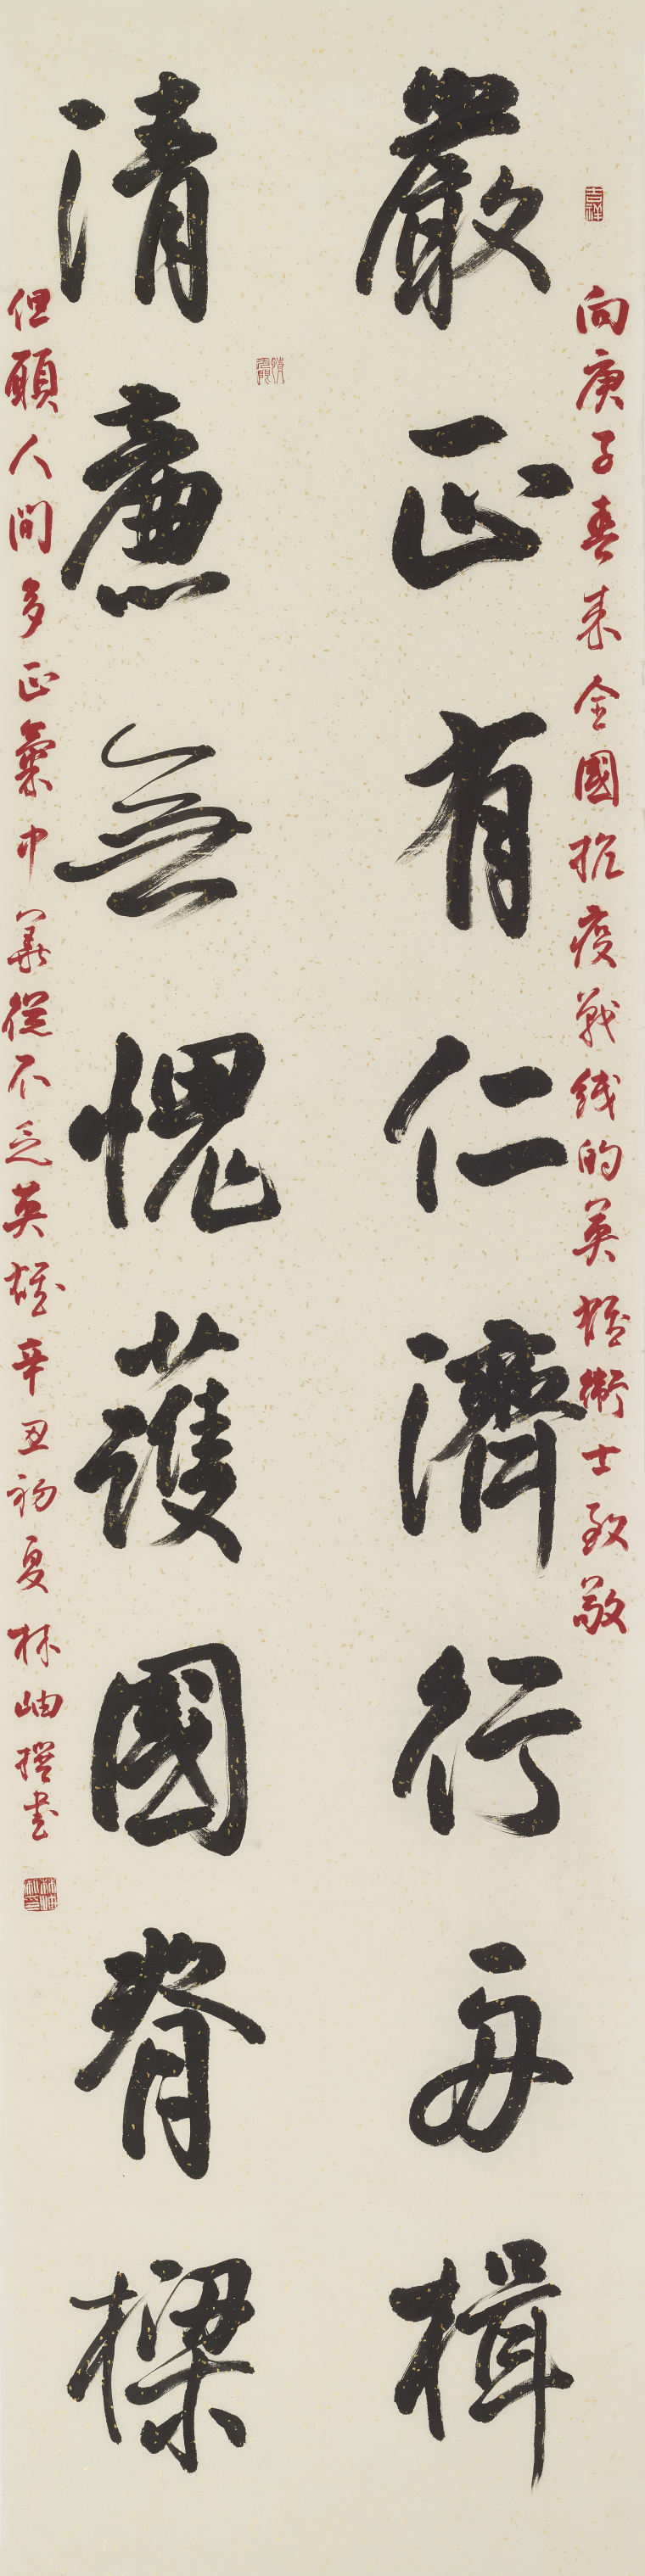 向庚子春来全國抗疫戰綫的英雄衛士致敬
嚴正有仁濟行舟楫
清廉無愧護國脊樑
但願人間多正氣中華從不乏英雄辛丑初夏林岫撰書
吉祥